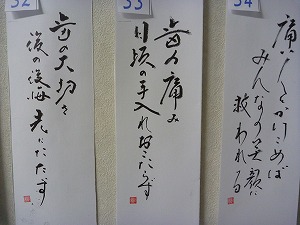 32
歯の大切さ
後の後悔 先にたたず
33
歯の痛み
日頃の手入れおこたらず
34
かけこめば
みんなの笑顔に
救われる